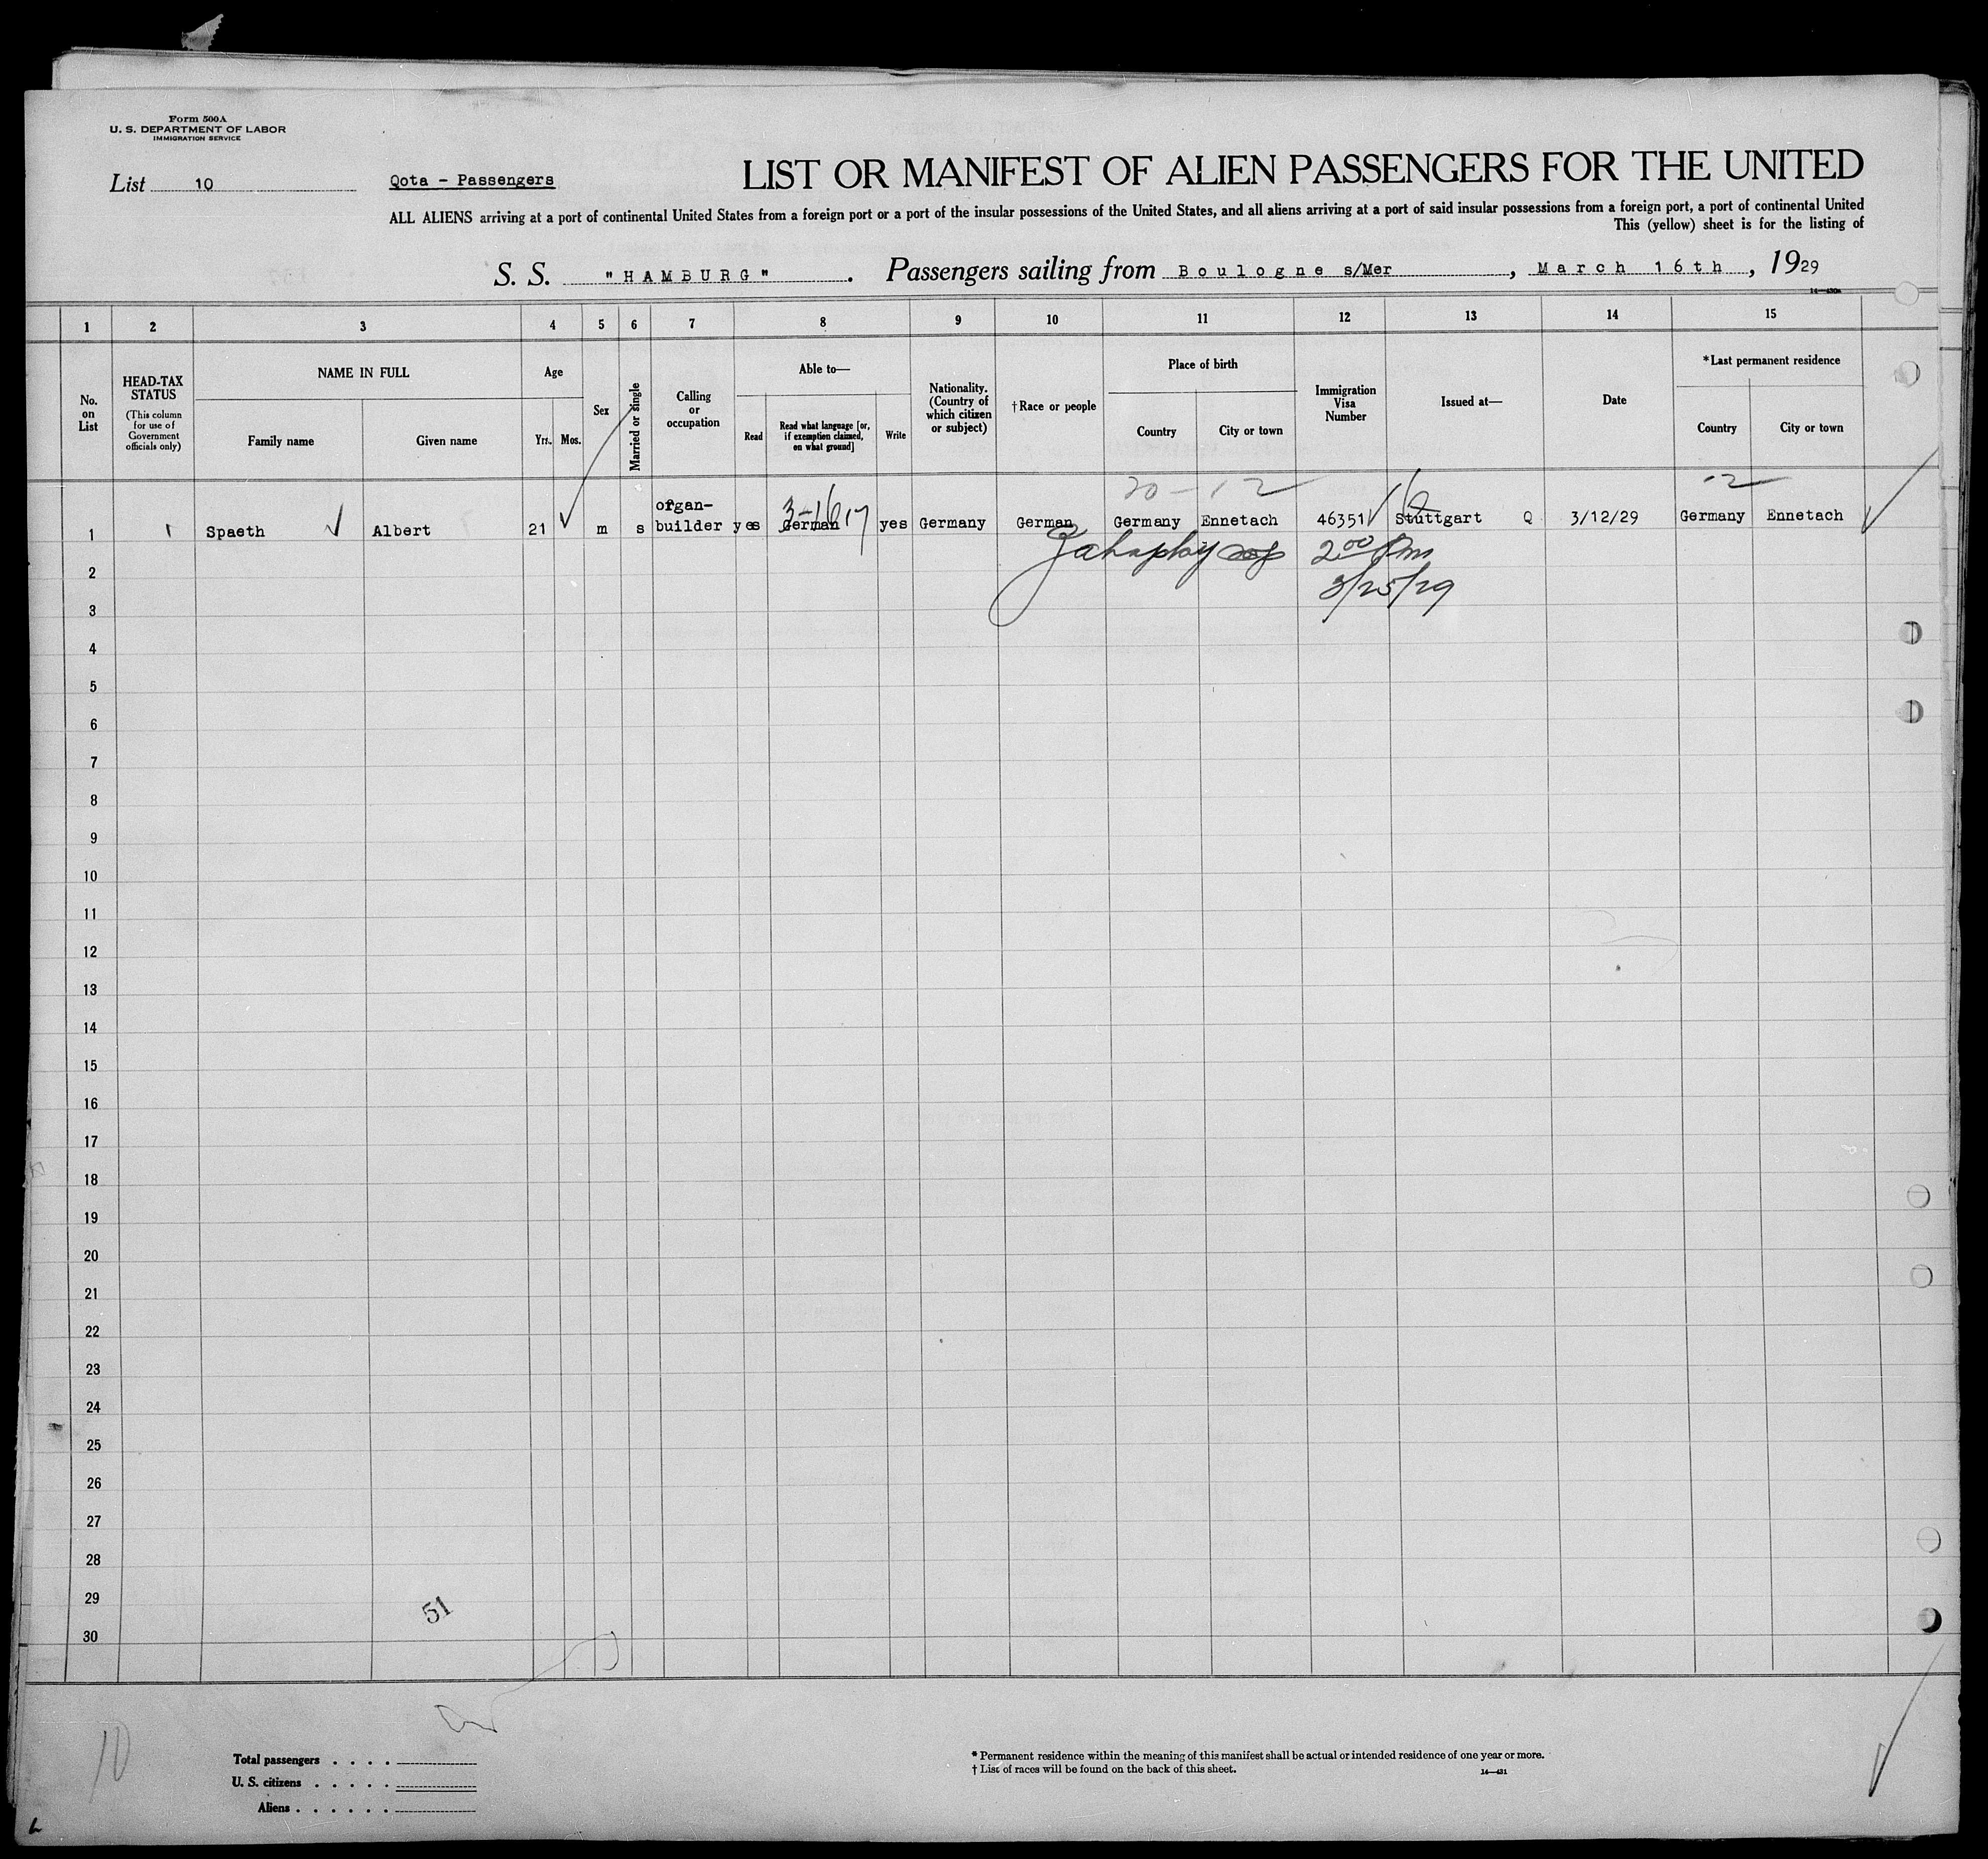 Form 500A
U. S. DEPARTMENT OF LABOR
IMMIGRATION SERVICE
List 10
Qota - Passengers
LIST OR MANIFEST OF ALIEN PASSENGERS FOR THE UNITED
ALL ALIENS arriving at a port of continental United States from a foreign port or a port of the insular possessions of the United States, and all aliens arriving at a port of said insular possessions from a foreign port, a port of continental United
This (yellow) sheet is for the listing of
S. S. "HAMBURG". Passengers sailing from Boulogne s/Mer, March 16th, 1929
14—430a
1 2 3 4 5 6 7 8 9 10 11 12 13 14 15
No. on List
HEAD-TAX STATUS
(This column for use of Government officials only)
NAME IN FULL
Family name Given name
Age
Yrs. Mos.
Sex
Married or single
Calling or occupation
Able to—
Read
Read what language [or, if exemption claimed, on what ground]
Write
Nationality. (Country of which citizen or subject)
†Race or people
Place of birth
Country City or town
Immigration Visa Number
Issued at—
Date
*Last permanent residence
Country City or town
20 - 12
-2
1 Spaeth Albert 21 m s organ-builder yes German yes Germany German Germany Ennetach 46351 Stuttgart Q 3/12/29 Germany Ennetach
2 2 00 Pm
3/25/29
3
4
5
6
7
8
9
10
11
12
13
14
15
16
17
18
19
20
21
22
23
24
25
26
27
28
29
51
30
10
Total passengers . . . .
U. S. citizens . . . . .
Aliens . . . . . .
* Permanent residence within the meaning of this manifest shall be actual or intended residence of one year or more.
† List of races will be found on the back of this sheet.
14—431